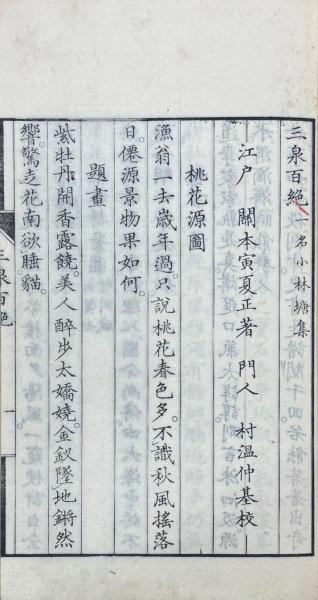 三泉百絶 一名小林塘集
江戸 關本寅夏正著 門人 村溫仲基校
桃花源圖
漁翁一去歲年過。只說桃花春色多。不識秋風搖落
日。僊源景物果如何。
題畫
紫牡丹開香露饒。美人醉步太嬌嬈。金釵墜地鏘然
響。驚走花南欲睡貓。
三泉百絶
一